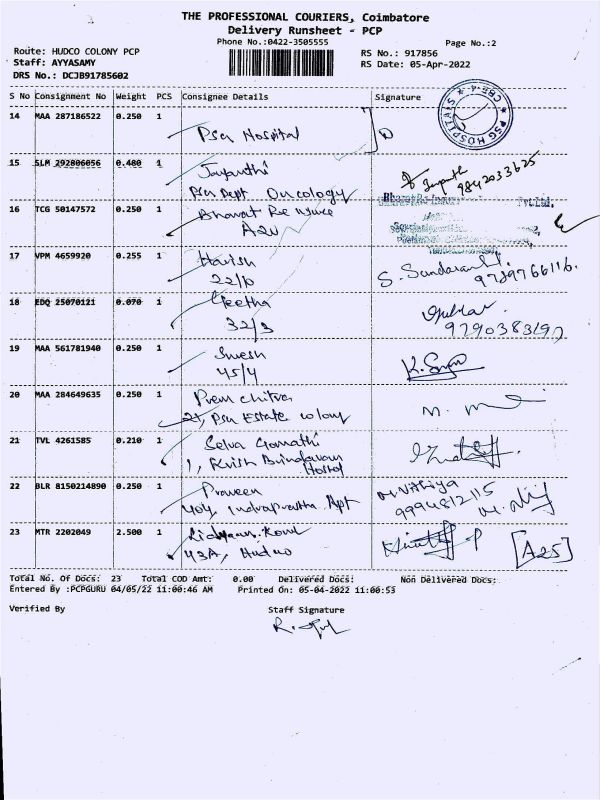 THE PROFESSIONAL COURIERS, Coimbatore
Delivery Runsheet - PCP
Phone No.:0422-3505555
Page No.:2
Route: HUDCO COLONY PCP
RS No.: 917856
Staff: AYYASAMY
RS Date: 05-Apr-2022
DRS No.: DCJB91785602
S No Consignment No Weight PCS Consignee Details Signature
14 MAA 287186522 0.250 1
PSG Hospital
PSG HOSPITALS CBE-4
15 SLM 292806056 0.480 1
Jayanthi
PSG Dept Oncology
9842033625
16 TCG 50147572 0.250 1
Bharat Re
17 VPM 4659920 0.255 1
Harish
22/10
S.
9789766116
18 EDQ 25070121 0.070 1
Geetha
32/3
19 MAA 561781940 0.250 1
Suresh
45/4
20 MAA 284649635 0.250 1
Prem Chitra
21, PSG Estate colony
21 TVL 4261585 0.210 1
Selva Gomathi
1, Krish Brindavan
Hostel
22 BLR 8150214890 0.250 1
Praveen
404, Indraprastha Apt
9994812115
23 MTR 2202049 2.500 1
43A, Hudco
[A25]
Total No. Of Docs: 23 Total COD Amt: 0.00 Delivered Docs: Non Delivered Docs:
Entered By :PCPGURU 04/05/22 11:00:46 AM Printed On: 05-04-2022 11:00:53
Verified By
Staff Signature